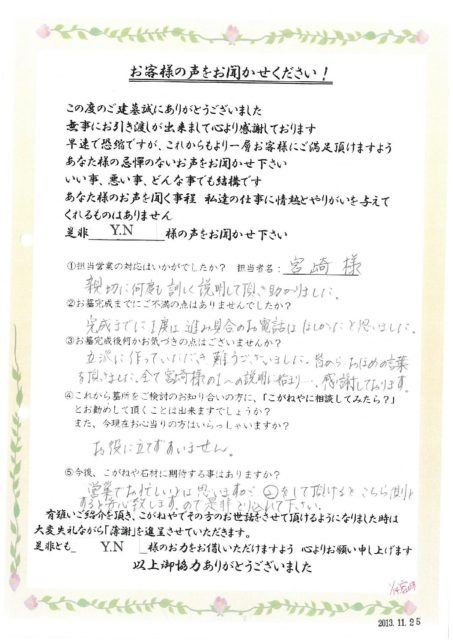 お客様の声をお聞かせください!
この度のご建墓誠にありがとうございました
無事にお引き渡しが出来まして心より感謝しております
早速で恐縮ですが、これからもより一層お客様にご満足頂けますよう
あなた様の忌憚のないお声をお聞かせ下さい
いい事、悪い事、どんな事でも結構です
あなた様のお声を聞く事程 私達の仕事に情熱とやりがいを与えて
くれるものはありません
是非 Y.N 様の声をお聞かせ下さい
①担当営業の対応はいかがでしたか? 担当者名: 宮崎 様
親切に何度も詳しく説明して頂き助かりました。
②お墓完成までにご不満の点はありませんでしたか?
完成までに1度は進み具合のお電話はほしかったと思いました。
③お墓完成後何かお気づきの点はございませんか?
立派に作っていただき有難うございました。皆から おほめの言葉
を頂きました。全て宮崎様の 説明に始まり…、感謝しております。
④これから墓所をご検討のお知り合いの方に、「こがねやに相談してみたら?」
とお勧めして頂くことは出来ますでしょうか?
また、今現在お心当りの方はいらっしゃいますか?
お役に立てずすいません。
⑤今後、こがねや石材に期待する事はありますか?
営業でお忙しいとは思いますが ②をして頂けると こちら側と
しても安心致しますので是非 下さい。
有難いご紹介を頂き、こがねやでその方のお世話をさせて頂けるようになりました時は
大変失礼ながら「薄謝」を進呈させていただきます。
是非とも Y.N 様のお力をお借しいただけますよう 心よりお願い申し上げます
以上御協力ありがとうございました
2013.11.25